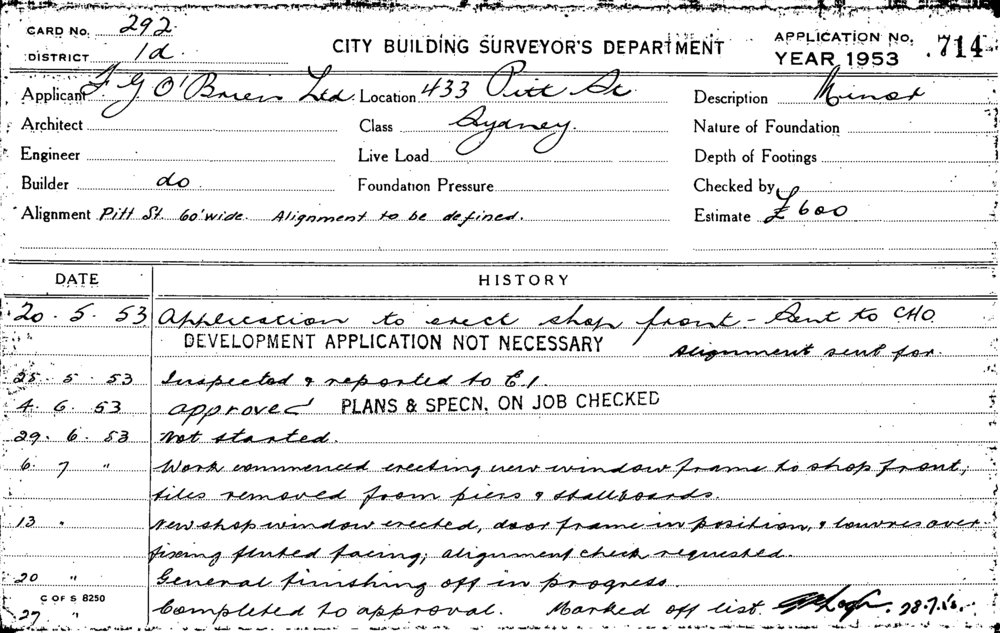 CARD No. 292
DISTRICT 1d
CITY BUILDING SURVEYOR'S DEPARTMENT
APPLICATION No. 714
YEAR 1953
Applicant F G O'Brien Ltd. Location 433 Pitt St Description Minor
Architect Class Sydney. Nature of Foundation
Engineer Live Load Depth of Footings
Builder do Foundation Pressure Checked by
Alignment Pitt St. 60' wide. Alignment to be defined. Estimate £600
DATE HISTORY
20. 5. 53 Application to erect shop front - Sent to CHO.
DEVELOPMENT APPLICATION NOT NECESSARY Alignment sent for.
25 5 53 Inspected & reported to E.I.
4. 6. 53 approved PLANS & SPECN. ON JOB CHECKED
29. 6. 53 Not started.
6. 7 " Work commenced erecting new window frame to shop front,
tiles removed from piers & stallboards.
13 " New shop window erected, door frame in position, & louvres over
fixing fluted facing; alignment check requested.
20 " General finishing off in progress.
C OF S 8250
27 " Completed to approval. Marked off list.